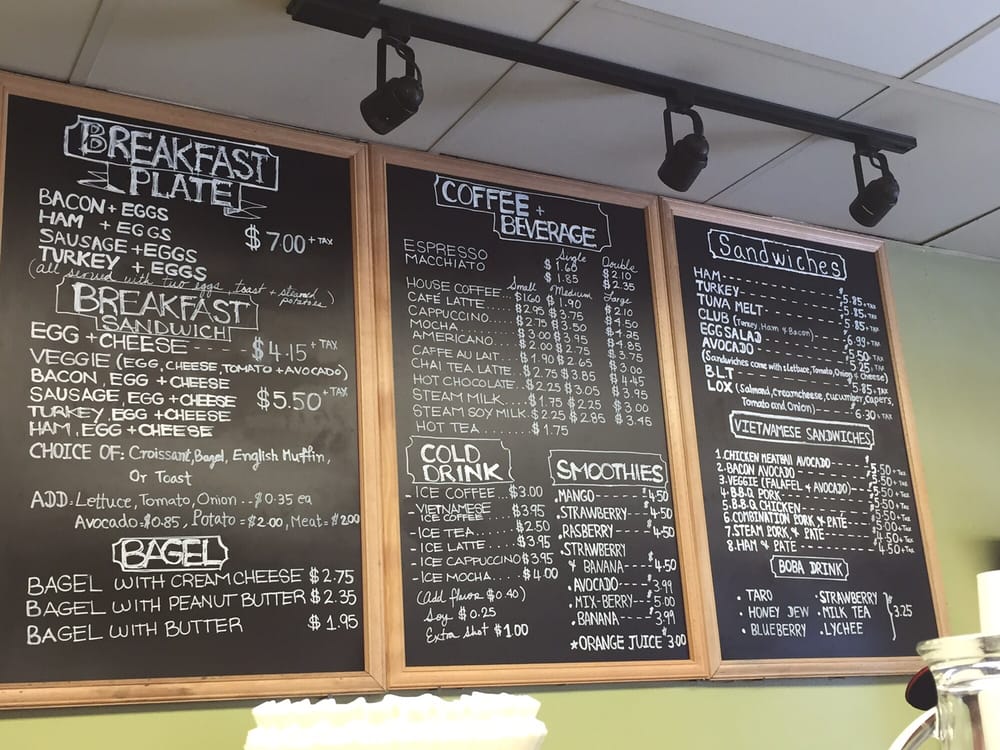 BREAKFAST
PLATE
BACON + EGGS
HAM + EGGS
$7.00 + TAX
SAUSAGE + EGGS
TURKEY + EGGS
(all served with two eggs, toast + steamed
potatoes)
BREAKFAST
SANDWICH
EGG + CHEESE ---- $4.15 + TAX
VEGGIE (EGG, CHEESE, TOMATO + AVOCADO)
BACON, EGG + CHEESE
SAUSAGE, EGG + CHEESE $5.50 + TAX
TURKEY, EGG + CHEESE
HAM, EGG + CHEESE
CHOICE OF: Croissant, Bagel, English Muffin,
Or Toast
ADD: Lettuce, Tomato, Onion -- $0.35 ea
Avocado = $0.85, Potato = $2.00, Meat = $2.00
BAGEL
BAGEL WITH CREAM CHEESE $2.75
BAGEL WITH PEANUT BUTTER $2.35
BAGEL WITH BUTTER $1.95
COFFEE +
BEVERAGE
Single Double
ESPRESSO $1.60 $2.10
MACCHIATO $1.85 $2.35
Small Medium Large
HOUSE COFFEE.. $1.60 $1.90 $2.10
CAFÉ LATTE... $2.95 $3.75 $4.50
CAPPUCCINO... $2.75 $3.50 $4.25
MOCHA... $3.00 $3.95 $4.85
AMERICANO... $2.00 $2.75 $3.75
CAFFE AU LAIT... $1.90 $2.65 $3.00
CHAI TEA LATTE.. $2.75 $3.85 $4.45
HOT CHOCOLATE.. $2.25 $3.05 $3.95
STEAM MILK... $1.75 $2.25 $3.00
STEAM SOY MILK.. $2.25 $2.85 $3.45
HOT TEA... $1.75
COLD
DRINK
- ICE COFFEE... $3.00
- VIETNAMESE
ICE COFFEE... $3.95
- ICE TEA... $2.50
- ICE LATTE... $3.95
- ICE CAPPUCCINO $3.95
- ICE MOCHA.... $4.00
(Add flavor $0.40)
Soy $0.25
Extra Shot $1.00
SMOOTHIES
.MANGO ---- $4.50
.STRAWBERRY --- $4.50
.RASBERRY --- $4.50
.STRAWBERRY
& BANANA --- $4.50
.AVOCADO --- $3.99
.MIX-BERRY --- $5.00
.BANANA --- $3.99
*ORANGE JUICE $3.00
Sandwiches
HAM ------ $5.85 + TAX
TURKEY ------ $5.85 + TAX
TUNA MELT ------ $5.85 + TAX
CLUB (Turkey, Ham & Bacon) --- $6.99 + TAX
EGG SALAD ------ $5.50 + TAX
AVOCADO ------ $5.25 + TAX
(Sandwiches come with Lettuce, Tomato, Onion & Cheese)
B.L.T ------ $5.85 + TAX
LOX (Salmon, creamcheese, cucumber, Capers,
Tomato and Onion) --- $6.30 + TAX
VIETNAMESE SANDWICHES
1. CHICKEN MEATBALL AVOCADO
2. BACON AVOCADO
3. VEGGIE (FALAFEL & AVOCADO)
4. B.B.Q. PORK
5. B.B.Q. CHICKEN
6. COMBINATION PORK & PATE
7. STEAM PORK & PATE
8. HAM & PATE --- $4.50 + TAX
BOBA DRINK
• TARO • STRAWBERRY
• HONEY DEW • MILK TEA } 3.25
• BLUEBERRY • LYCHEE